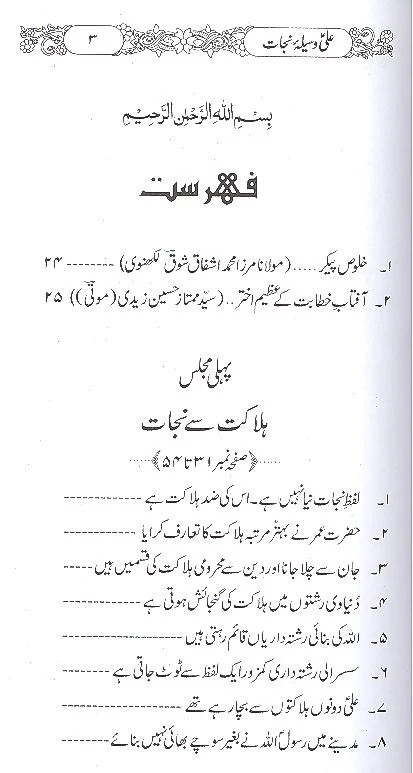 علیؑ وسیلۂ نجات
۳
بِسْمِ اللهِ الرَّحْمٰنِ الرَّحِیْمِ
فہرست
۱۔ خلوص پیکر ..... (مولانا مرزا محمد اشفاق شوقؔ لکھنوی) -------- ۲۴
۲۔ آفتابِ خطابت کے عظیم اختر .. (سیّد ممتاز حسین زیدی (مونیؔ)) ۲۵
پہلی مجلس
ہلاکت سے نجات
﴿صفحہ نمبر ۳۱ تا ۵۴﴾
۱۔ لفظِ نجات نیا نہیں ہے۔ اس کی ضد ہلاکت ہے -------------
۲۔ حضرت عمر نے بہتّر مرتبہ ہلاکت کا تعارف کرایا -------------
۳۔ جان سے چلا جانا اور دین سے محرومی ہلاکت کی قسمیں ہیں ------
۴۔ دُنیاوی رشتوں میں ہلاکت کی گنجائش ہوتی ہے -------------
۵۔ اللہ کی بنائی رشتہ داریاں قائم رہتی ہیں ----------------
۶۔ سسرالی رشتہ داری کمزور ایک لفظ سے ٹوٹ جاتی ہے ---------
۷۔ علیؑ دونوں ہلاکتوں سے بچا رہے تھے -------------------
۸۔ مدینے میں رسولؐ اللہ نے بغیر سوچے بھائی نہیں بنائے --------